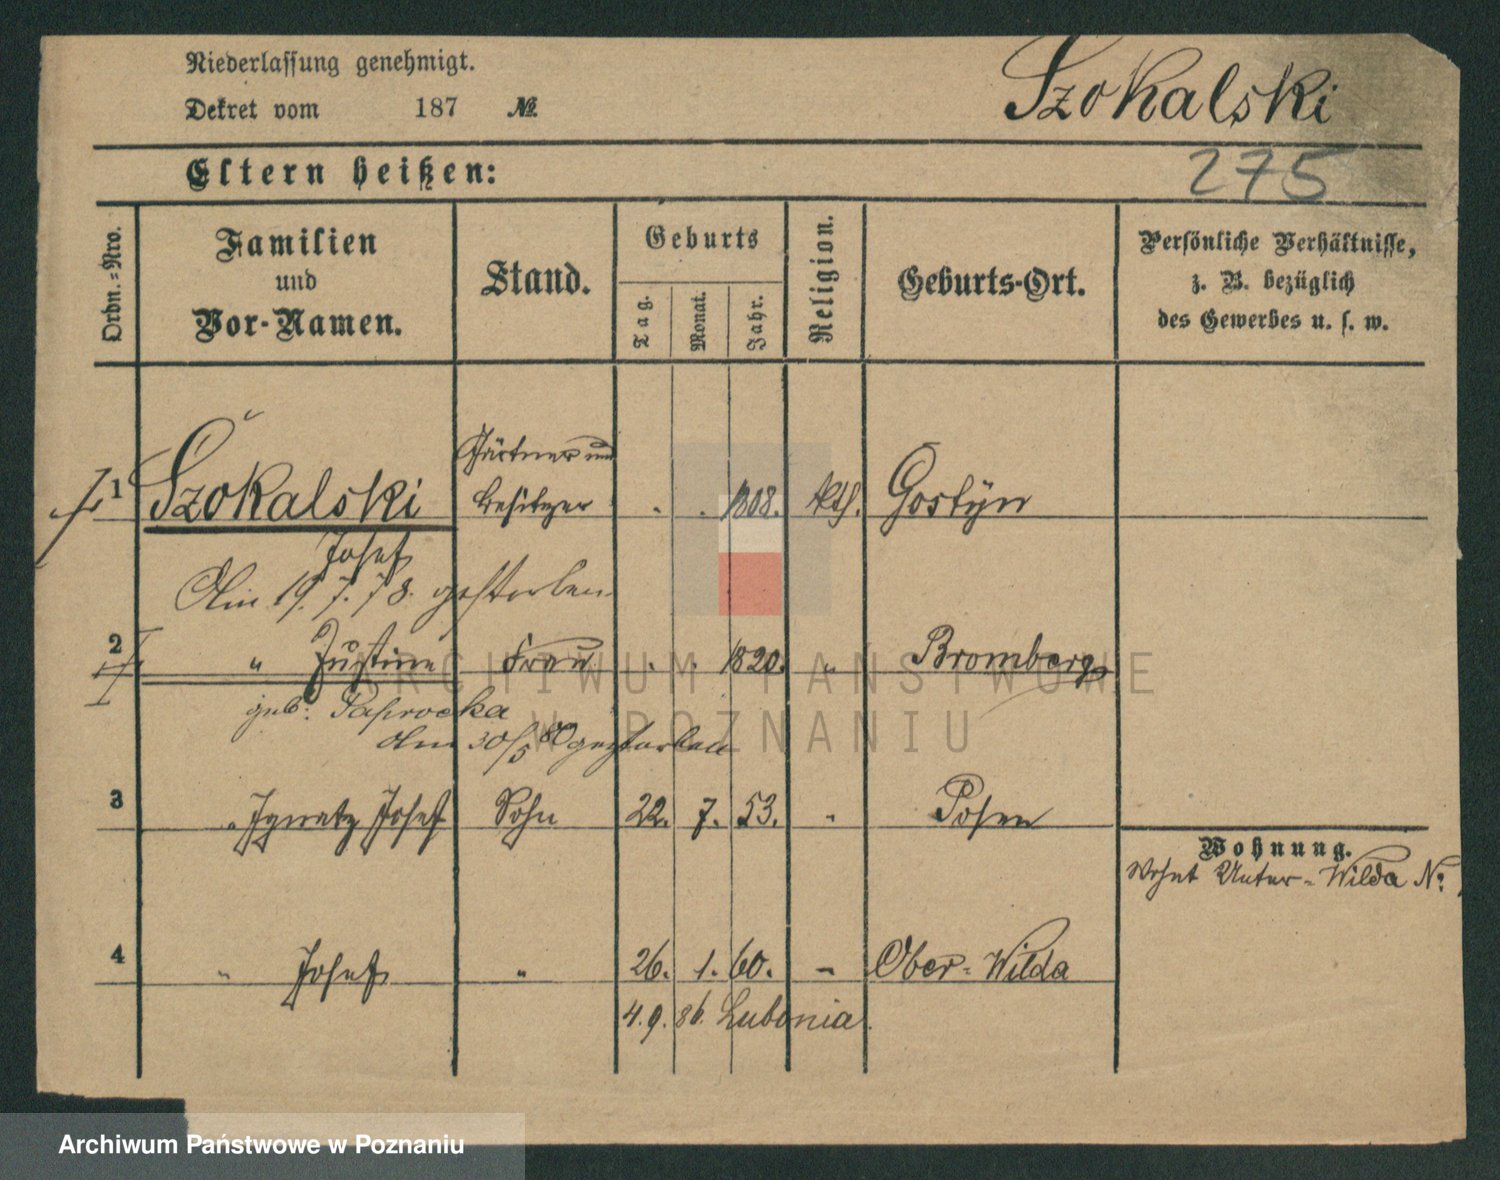 Niederlassung genehmigt.
Dekret vom 187 №
Szokalski
Eltern heißen:
275
Ordn.-Nro.
Familien
und
Vor-Namen.
Stand.
Geburts
Tag.
Monat.
Jahr.
Religion.
Geburts-Ort.
Persönliche Verhältnisse,
z. B. bezüglich
des Gewerbes u. s. w.
Gärtner und
1 Szokalski Besitzer . . 1808. kth. Gostÿn
Josef
Am 19.7.78. gestorben
2 " Justine Frau . . 1820. " Bromberg
geb: Saprocka
Am 30/5 80 gestorben
3 " Ignatz Josef Sohn 22. 7. 53. " Posen
Wohnung.
Wohnt Unter-Wilda No
4 " Josef " 26. 1. 60. " Ober-Wilda
4.9.86. Lubonia.
ARCHIWUM PAŃSTWOWE
W POZNANIU
Archiwum Państwowe w Poznaniu